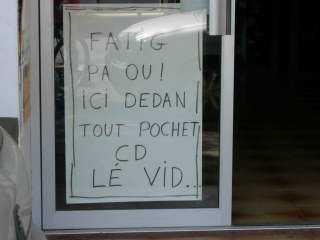 FATIG
PA OU!
ICI DEDAN
TOUT POCHET
CD
LÉ VID...